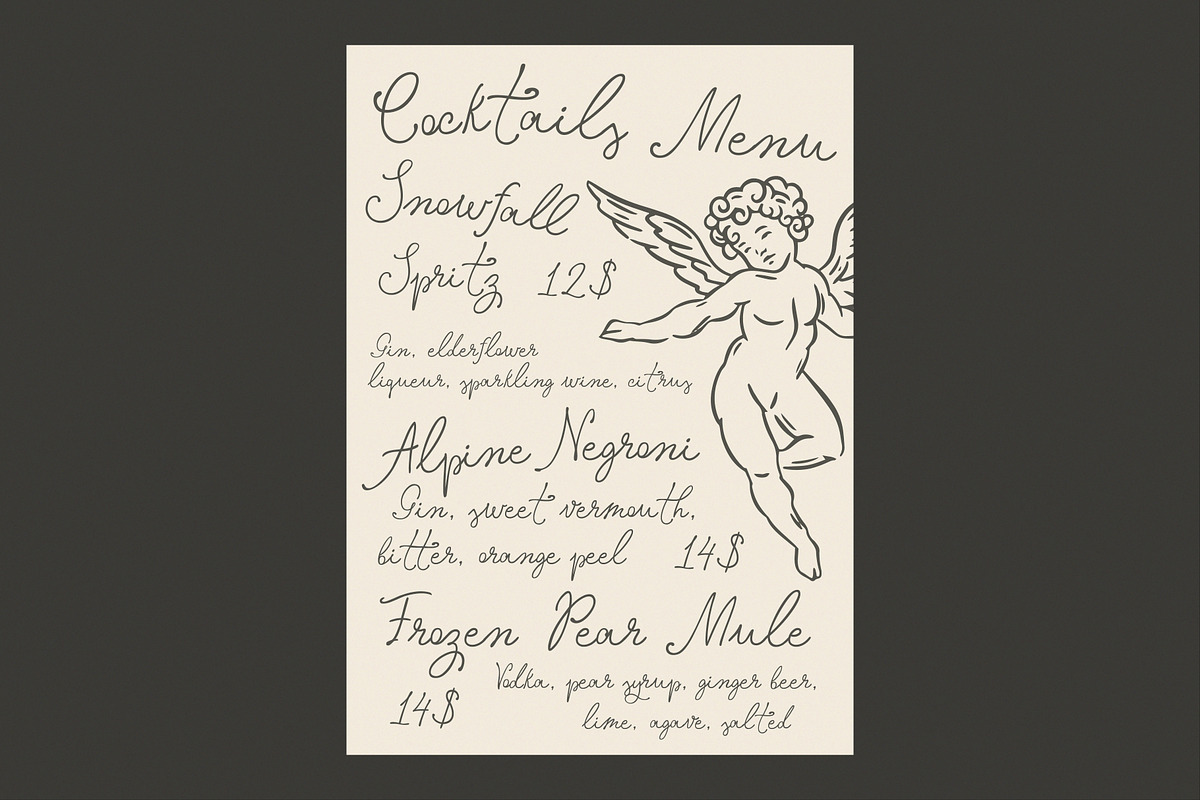 Cocktails Menu
Snowfall
Spritz 12$
Gin, elderflower
liqueur, sparkling wine, citrus
Alpine Negroni
Gin, sweet vermouth,
bitter, orange peel 14$
Frozen Pear Mule
Vodka, pear syrup, ginger beer,
14$
lime, agave, salted